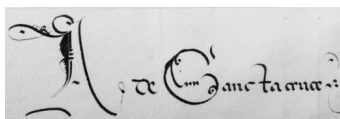 A de Sancta cruce